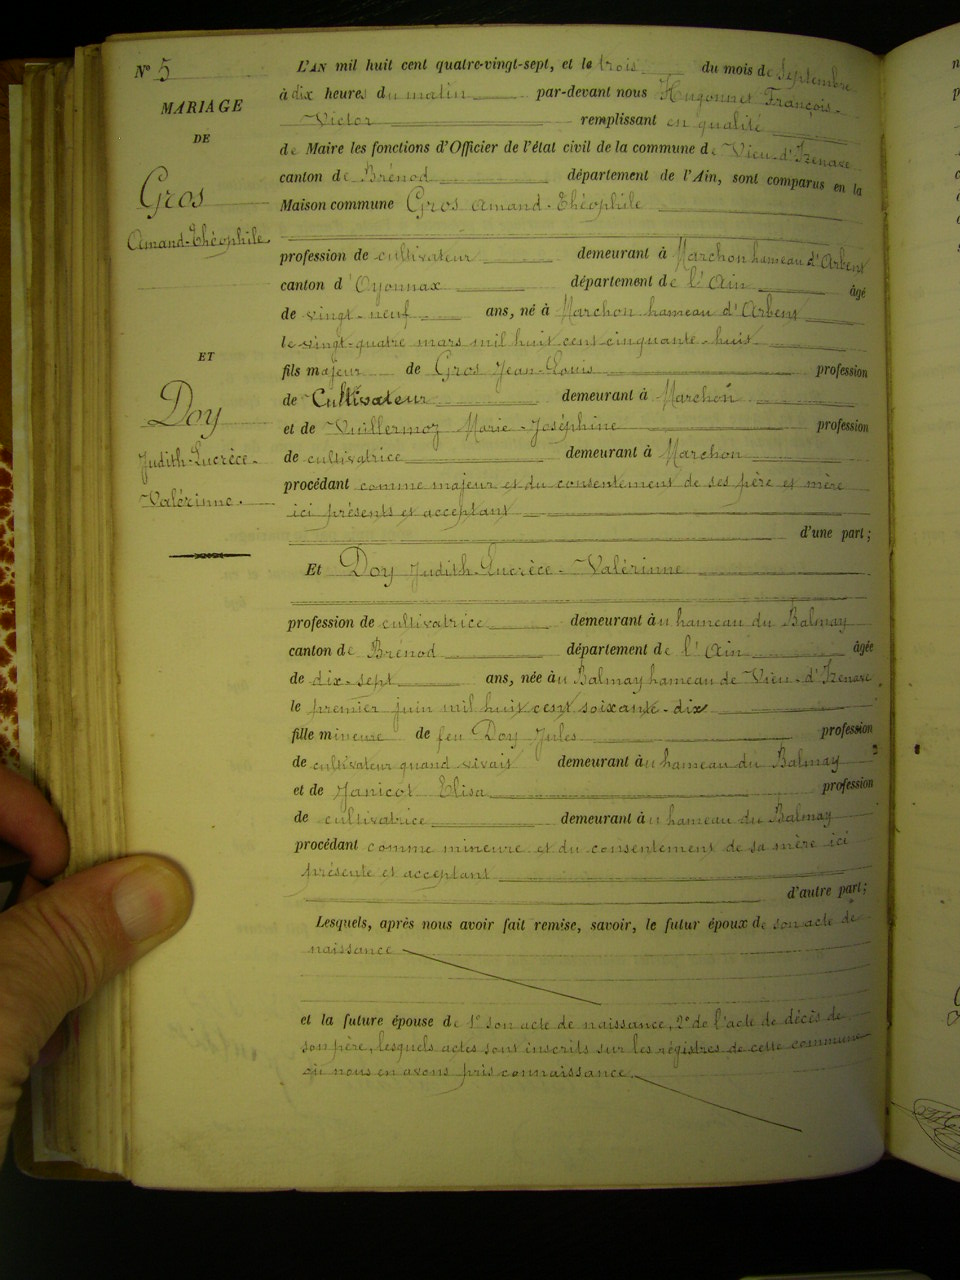 N° 5
MARIAGE
DE
Gros
Amand-Théophile.
ET
Doy
Judith-Lucrèce-
Valérinne.
L'AN mil huit cent quatre-vingt-sept, et le trois du mois de Septembre
à dix heures du matin par-devant nous Hugonnet François-
Victor remplissant en qualité
de Maire les fonctions d'Officier de l'état civil de la commune de Vieu-d'Izenave
canton de Brénod département de l'Ain, sont comparus en la
Maison commune Gros Amand-Théophile
profession de cultivateur demeurant à Marchon hameau d'Arbent
canton d'Oyonnax département de l'Ain âgé
de vingt-neuf ans, né à Marchon hameau d'Arbent
le vingt-quatre mars mil huit cent cinquante-huit
fils majeur de Gros Jean-Louis profession
de Cultivateur demeurant à Marchon
et de Vuillermoz Marie-Joséphine profession
de cultivatrice demeurant à Marchon
procédant comme majeur et du consentement de ses père et mère
ici présents et acceptant
d'une part;
Et Doy Judith-Lucrèce-Valérinne
profession de cultivatrice demeurant àu hameau du Balmay
canton de Brénod département de l'Ain âgée
de dix-sept ans, née àu Balmay hameau de Vieu-d'Izenave
le premier juin mil huit cent soixante-dix
fille mineure de feu Doy Jules profession
de cultivateur quand vivait demeurant àu hameau du Balmay
et de Janicot Elisa profession
de cultivatrice demeurant àu hameau du Balmay
procédant comme mineure et du consentement de sa mère ici
présente et acceptant
d'autre part;
Lesquels, après nous avoir fait remise, savoir, le futur époux de son acte de
naissance
et la future épouse de 1° son acte de naissance, 2° de l'acte de décès de
son père, lesquels actes sont inscrits sur les régistres de cette commune
où nous en avons pris connaissance.